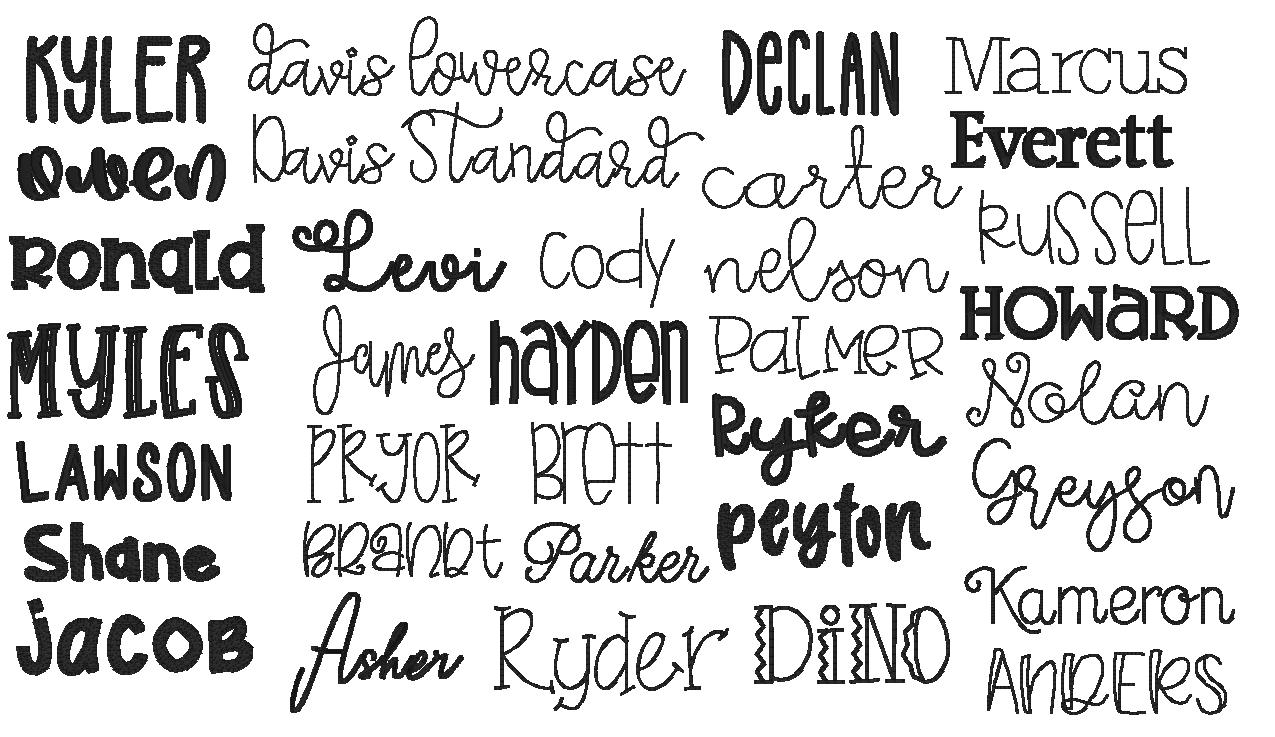 KYLER
davis lowercase
DeCLAN
Marcus
owen
Davis Standard
carter
Everett
Ronald
Levi
Cody
nelson
RUSSeLL
MYLES
James
hayDen
PaLMeR
HOWaRD
LAWSON
PRyOR
Brett
Ryker
Nolan
Shane
BRanDt
Parker
peyton
Greyson
jaCOB
Asher
Ryder
DiNO
Kameron
AnDERS